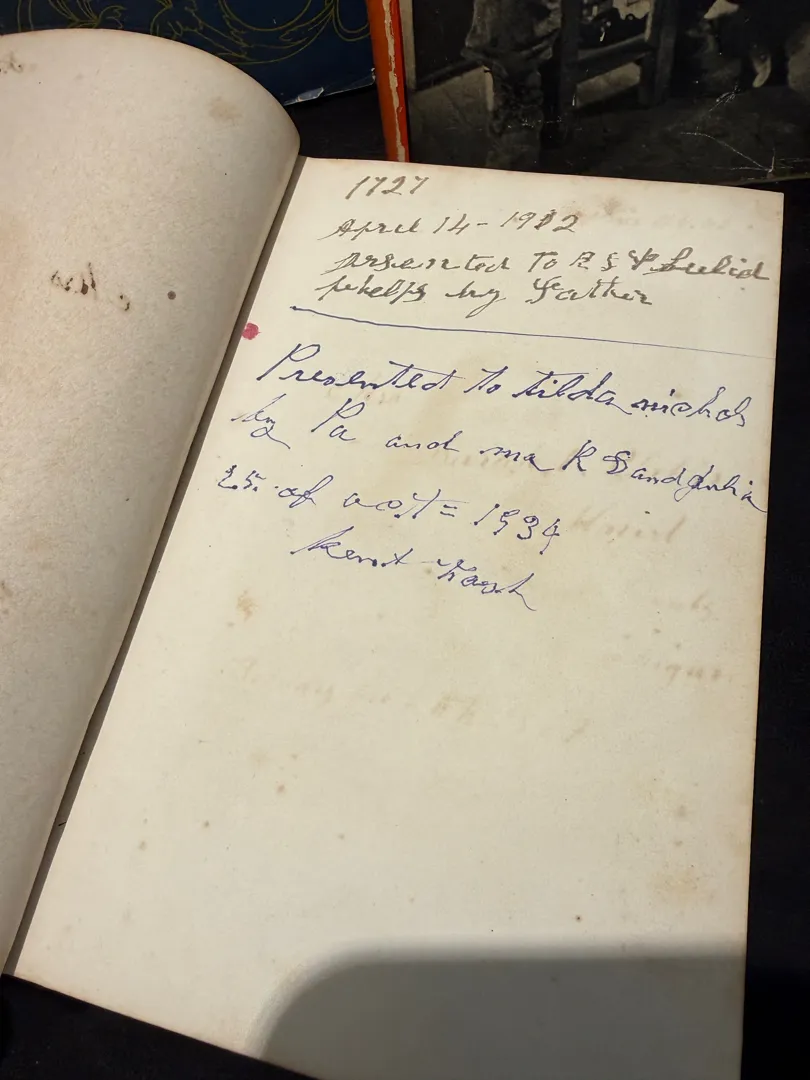 1727
April 14-1912
presented To R S
phelps by Father
Presented to tilda nichols
by Pa and ma R S and Julia
25. of oct = 1934
kent Wash